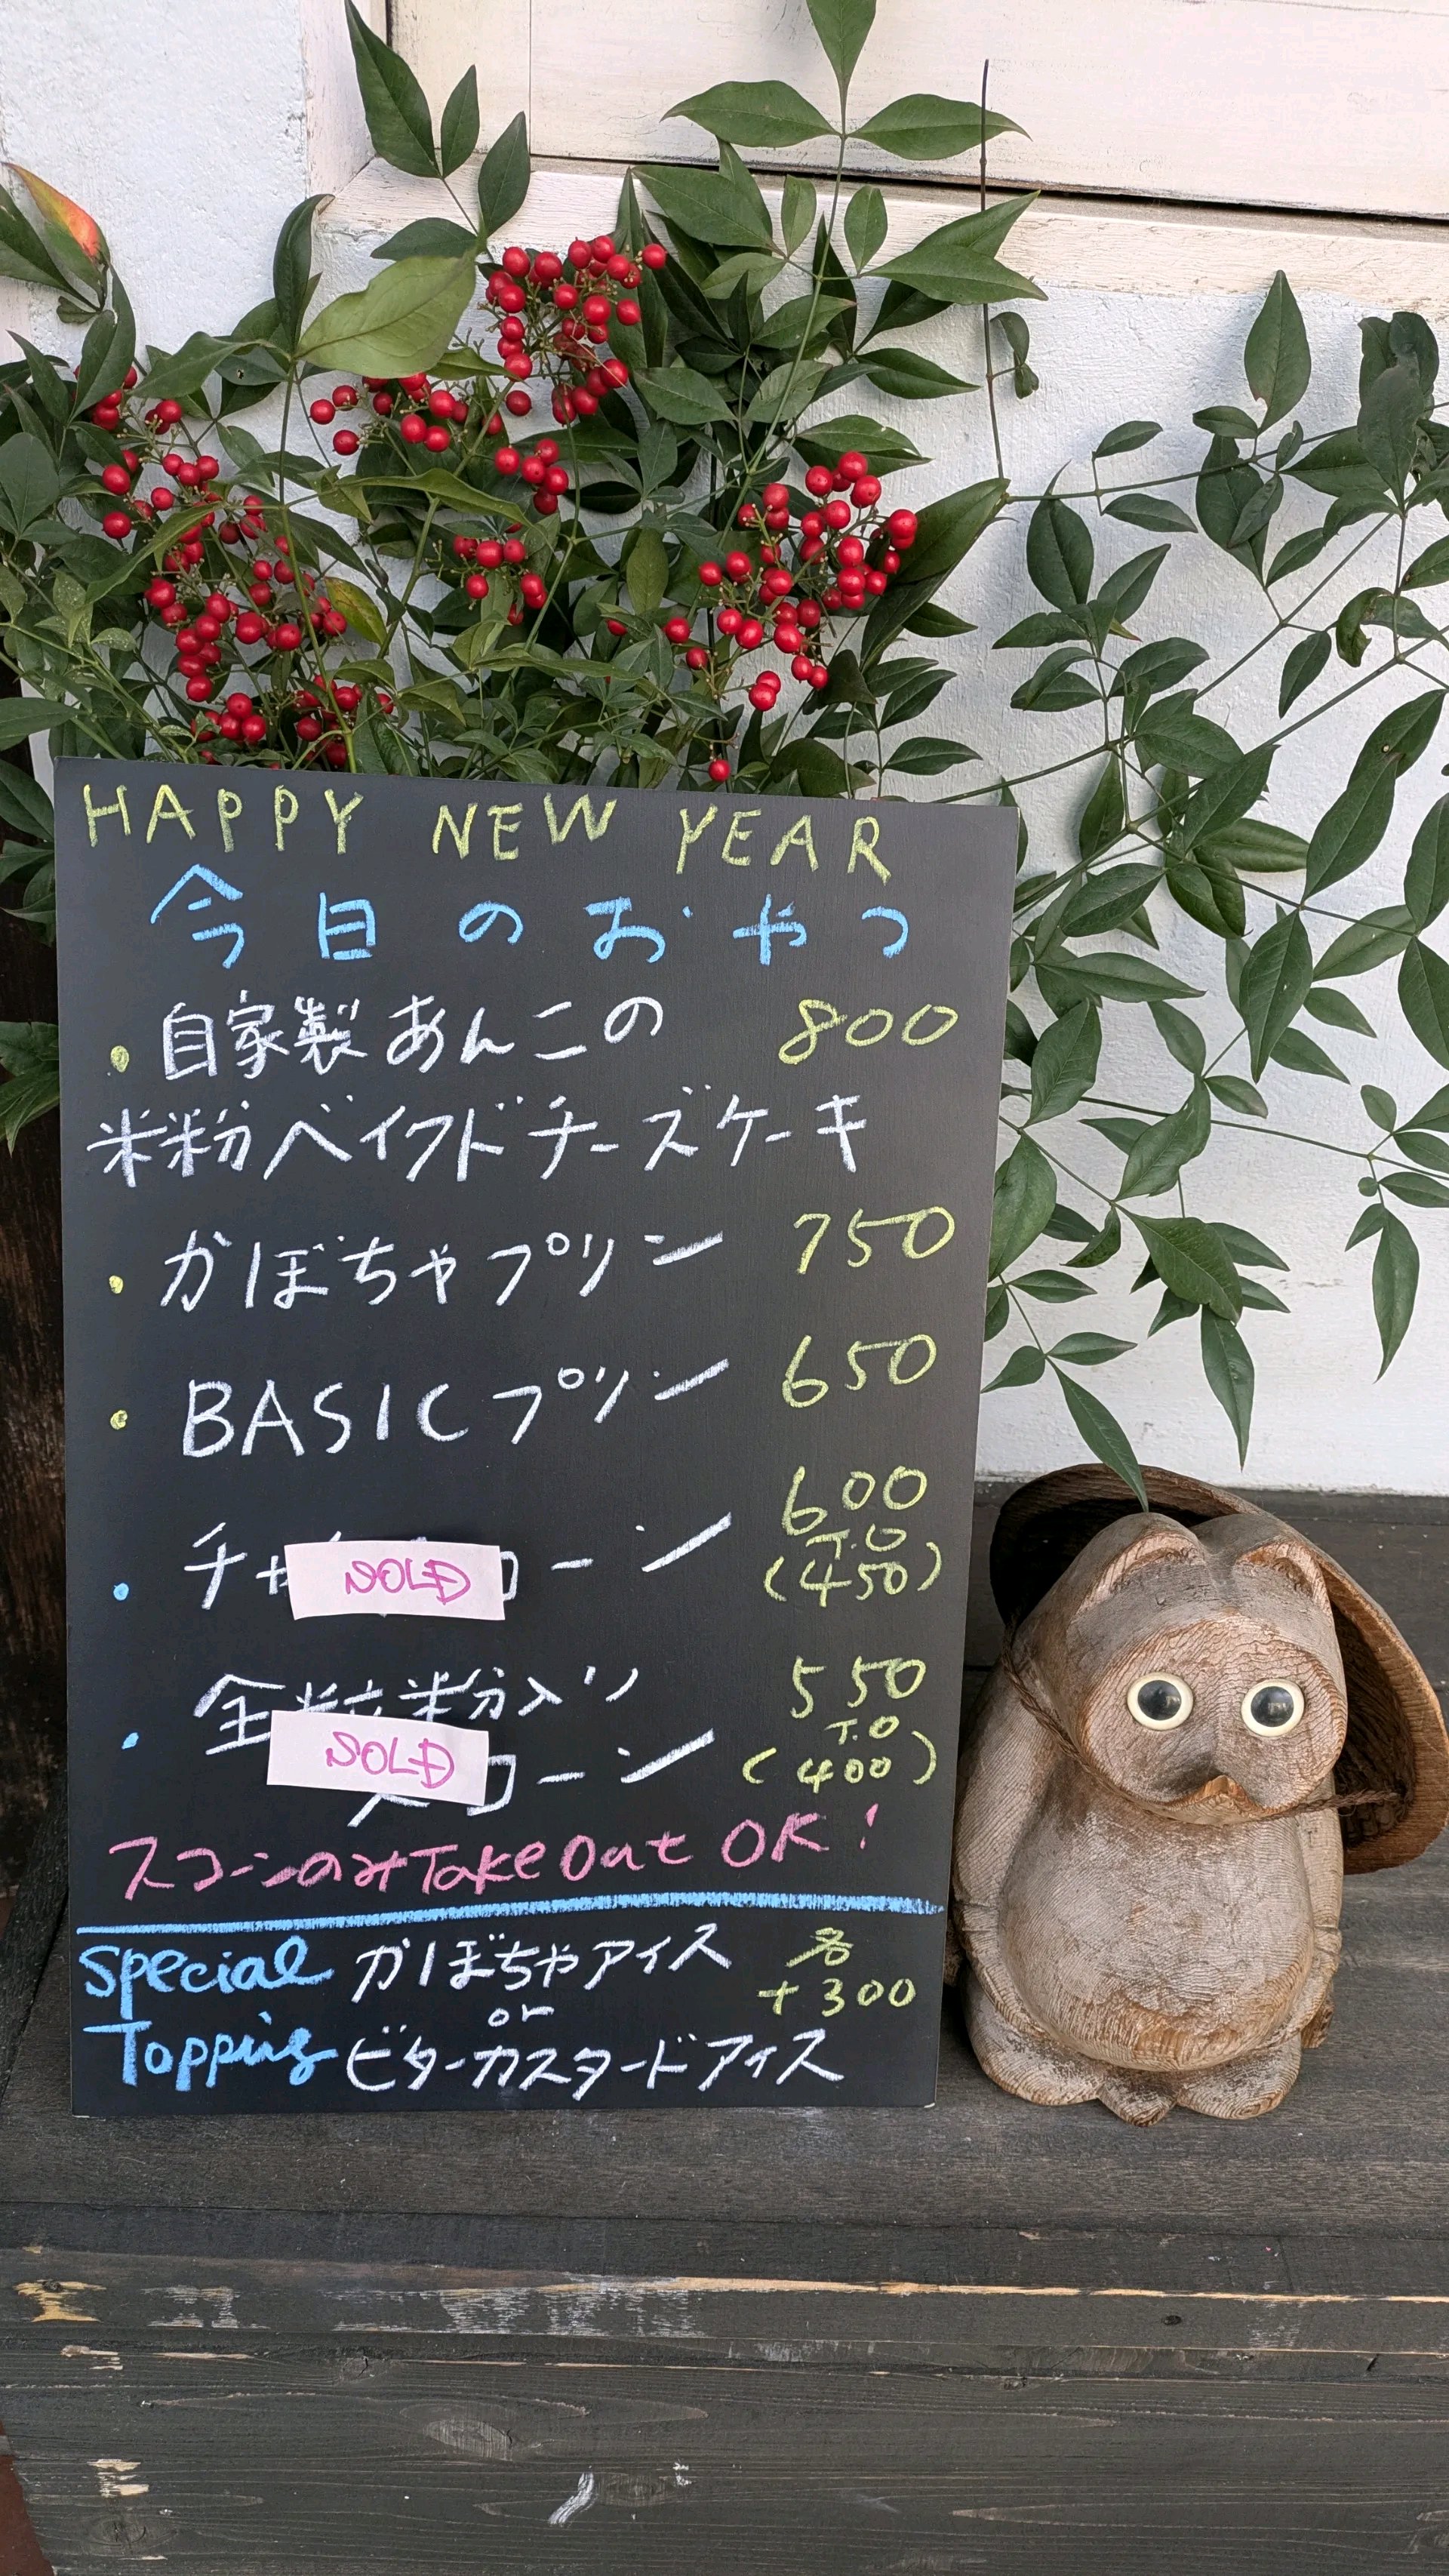 HAPPY NEW YEAR
今日のおやつ
・自家製あんこの 800
米粉ベイクドチーズケーキ
・かぼちゃプリン 750
・BASICプリン 650
600
・チャ SOLD ーン T.O
(450)
全粒粉入り 550
T.O
・SOLD コーン (400)
スコーンのみTake Out OK!
Special かぼちゃアイス 各
or +300
Topping ビターカスタードアイス